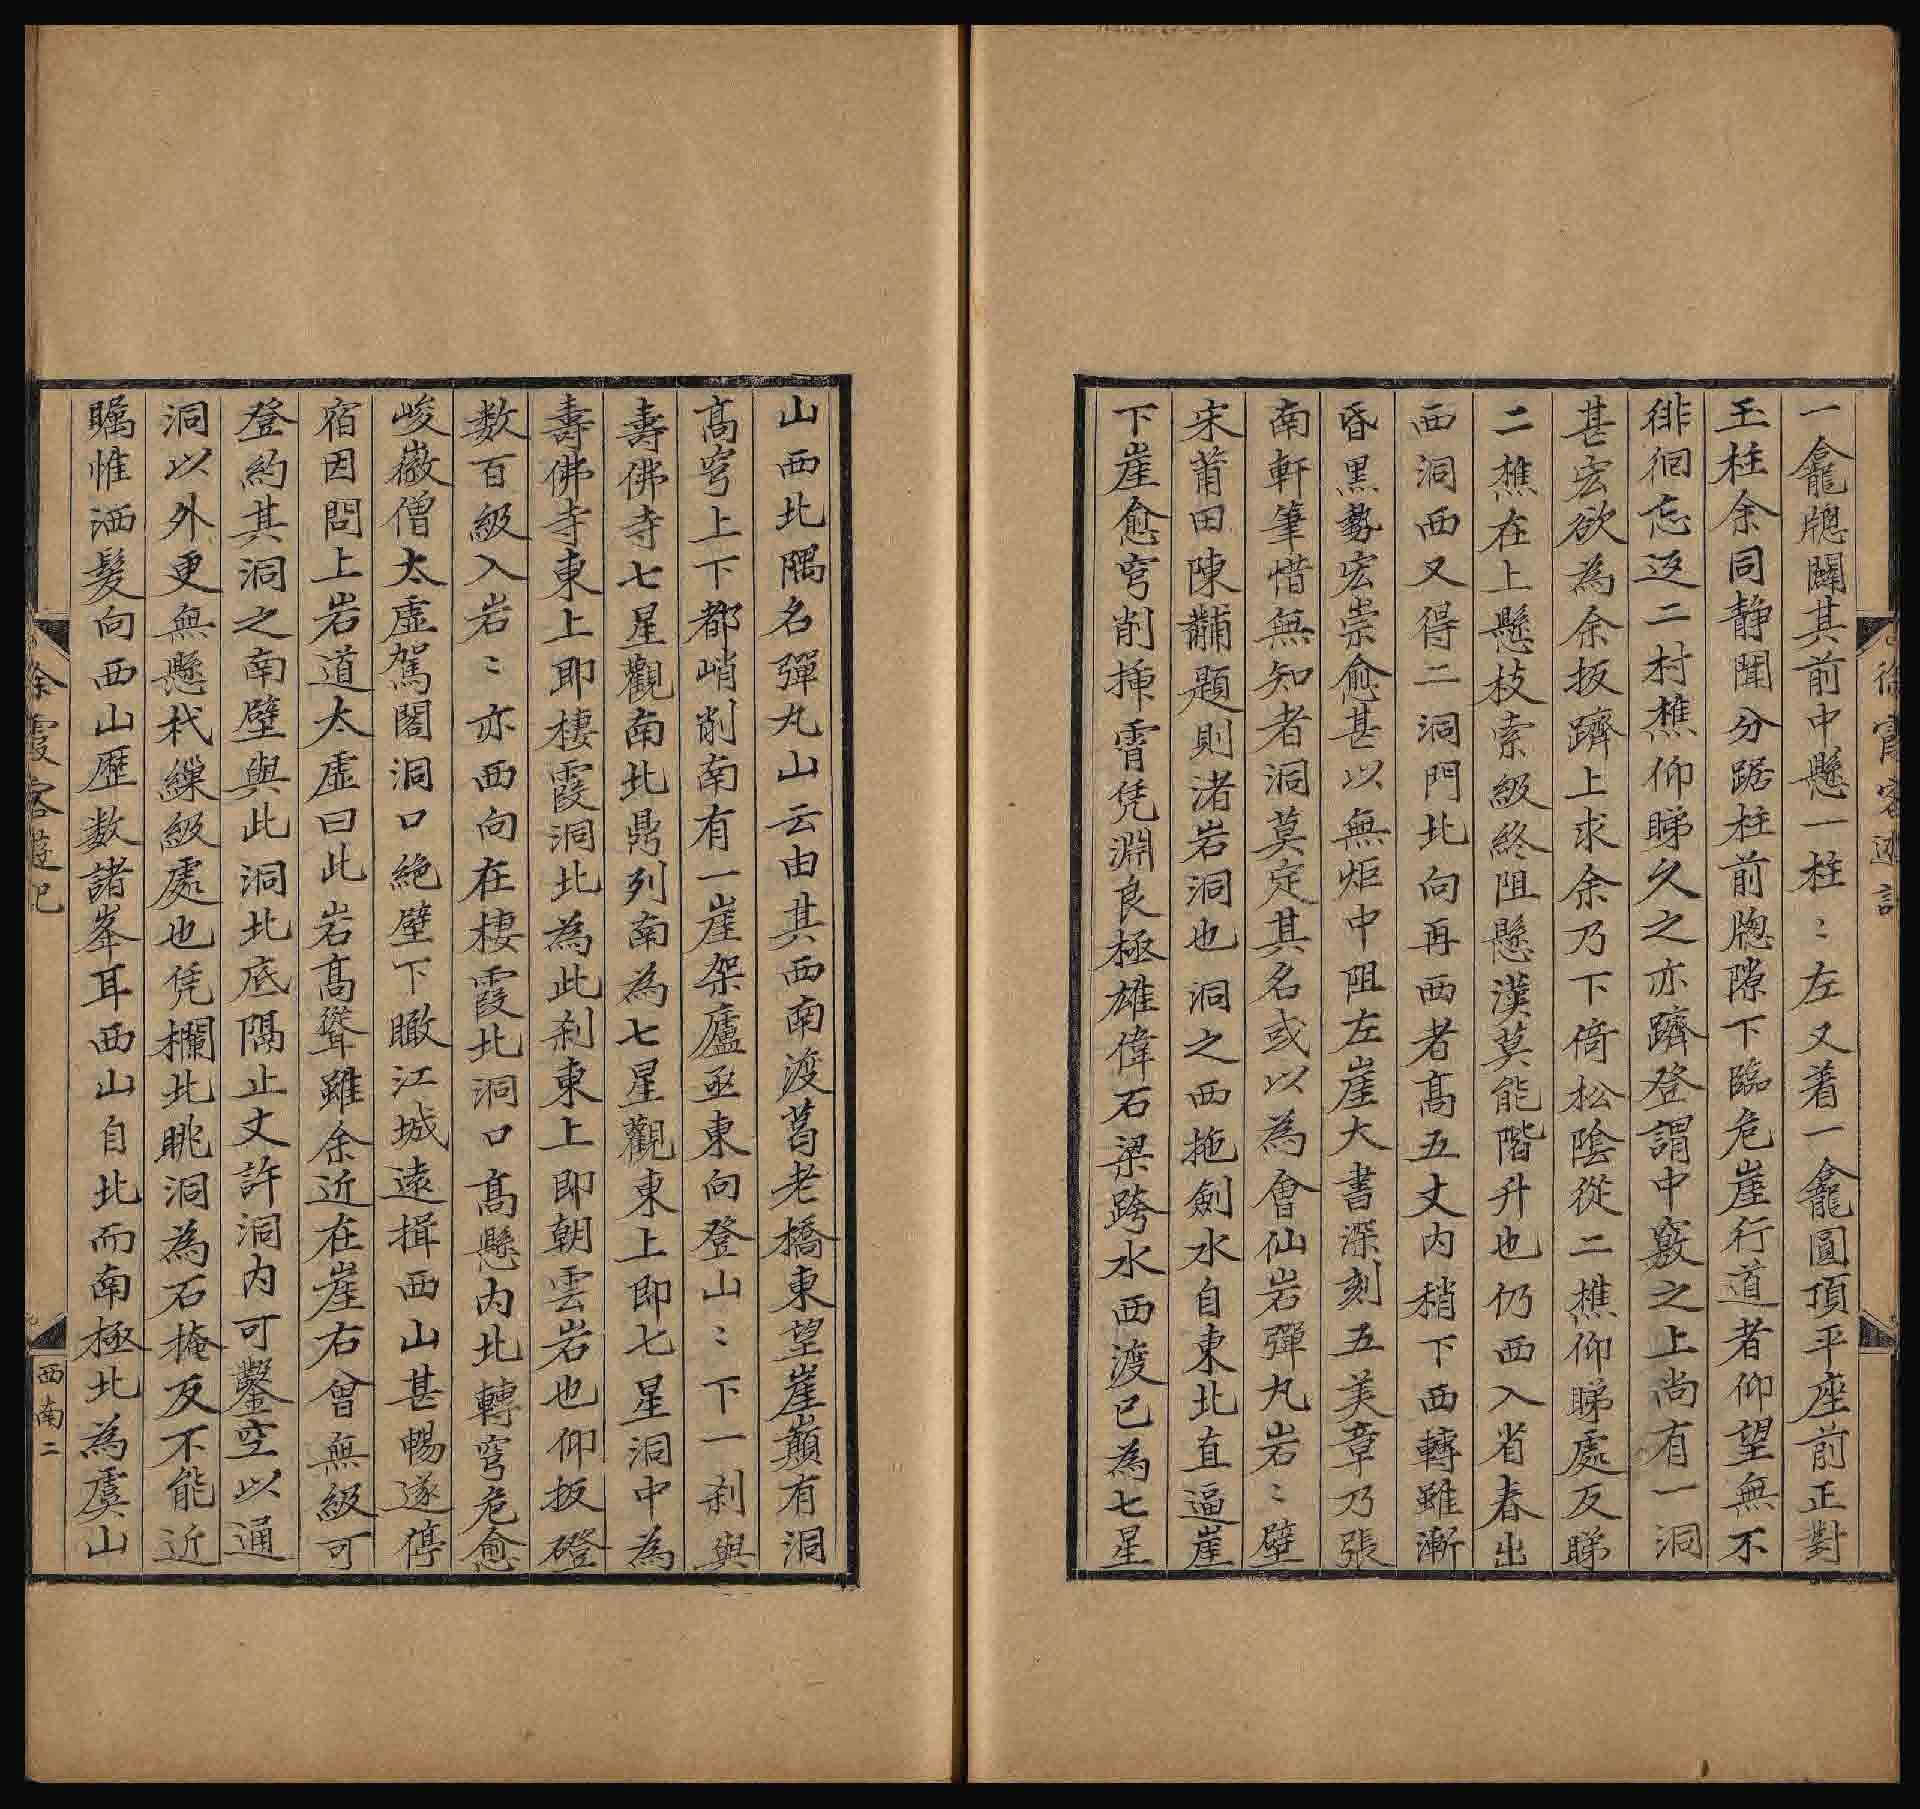 一龕牕闢其前中懸一柱〻左又着一龕圓頂平座前正對
玉柱余同静聞分踞柱前牕隙下臨危崖行道者仰望無不
徘徊忘返二村樵仰睇久之亦躋登謂中竅之上尚有一洞
甚宏欲為余扳躋上求余乃下倚松陰從二樵仰睇處反睇
二樵在上懸枝索級終阻懸漢莫能階升也仍西入省春出
西洞西又得二洞門北向再西者髙五丈内稍下西轉雖漸
昏黑勢宏崇愈甚以無炬中阻左崖大書深刻五美章乃張
南軒筆惜無知者洞莫定其名或以為會仙岩彈丸岩〻壁
宋莆田陳黼題則渚岩洞也洞之西拖劍水自東北直逼崖
下崖愈穹削揷霄凭淵良極雄偉石梁跨水西渡已為七星
山西北隅名彈丸山云由其西南渡葛老橋東望崖巔有洞
髙穹上下都峭削南有一崖架廬亟東向登山〻下一刹與
壽佛寺七星觀南北鼎列南為七星觀東上即七星洞中為
壽佛寺東上即棲霞洞北為此刹東上即朝雲岩也仰扳磴
数百級入岩〻亦西向在棲霞北洞口髙懸内北轉穹危愈
峻徽僧太虛駕閣洞口絶壁下瞰江城遠揖西山甚暢遂停
宿因問上岩道太虛曰此岩髙聳雖余近在崖右曾無級可
登約其洞之南壁與此洞北底隔止丈許洞内可鑿空以通
洞以外更無懸杙纍級處也凭欄北眺洞為石掩反不能近
矚惟洒髮向西山歷数諸峯耳西山自北而南極北為虞山
徐霞客遊記
西南二